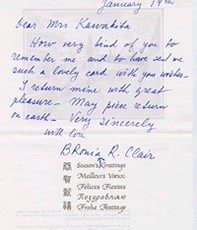 January 19th
Dear Mrs Kawakita
How very kind of you to
remember me and to have sent me
such a lovely card with your wishes-
I return mine with great
pleasure - May piece return
on earth - Very sincerely
with love
BRonia R. Clair
Season's Greetings
Meilleurs Voeux
Felices Fiestas
Поздравляю
Frohe Festtage